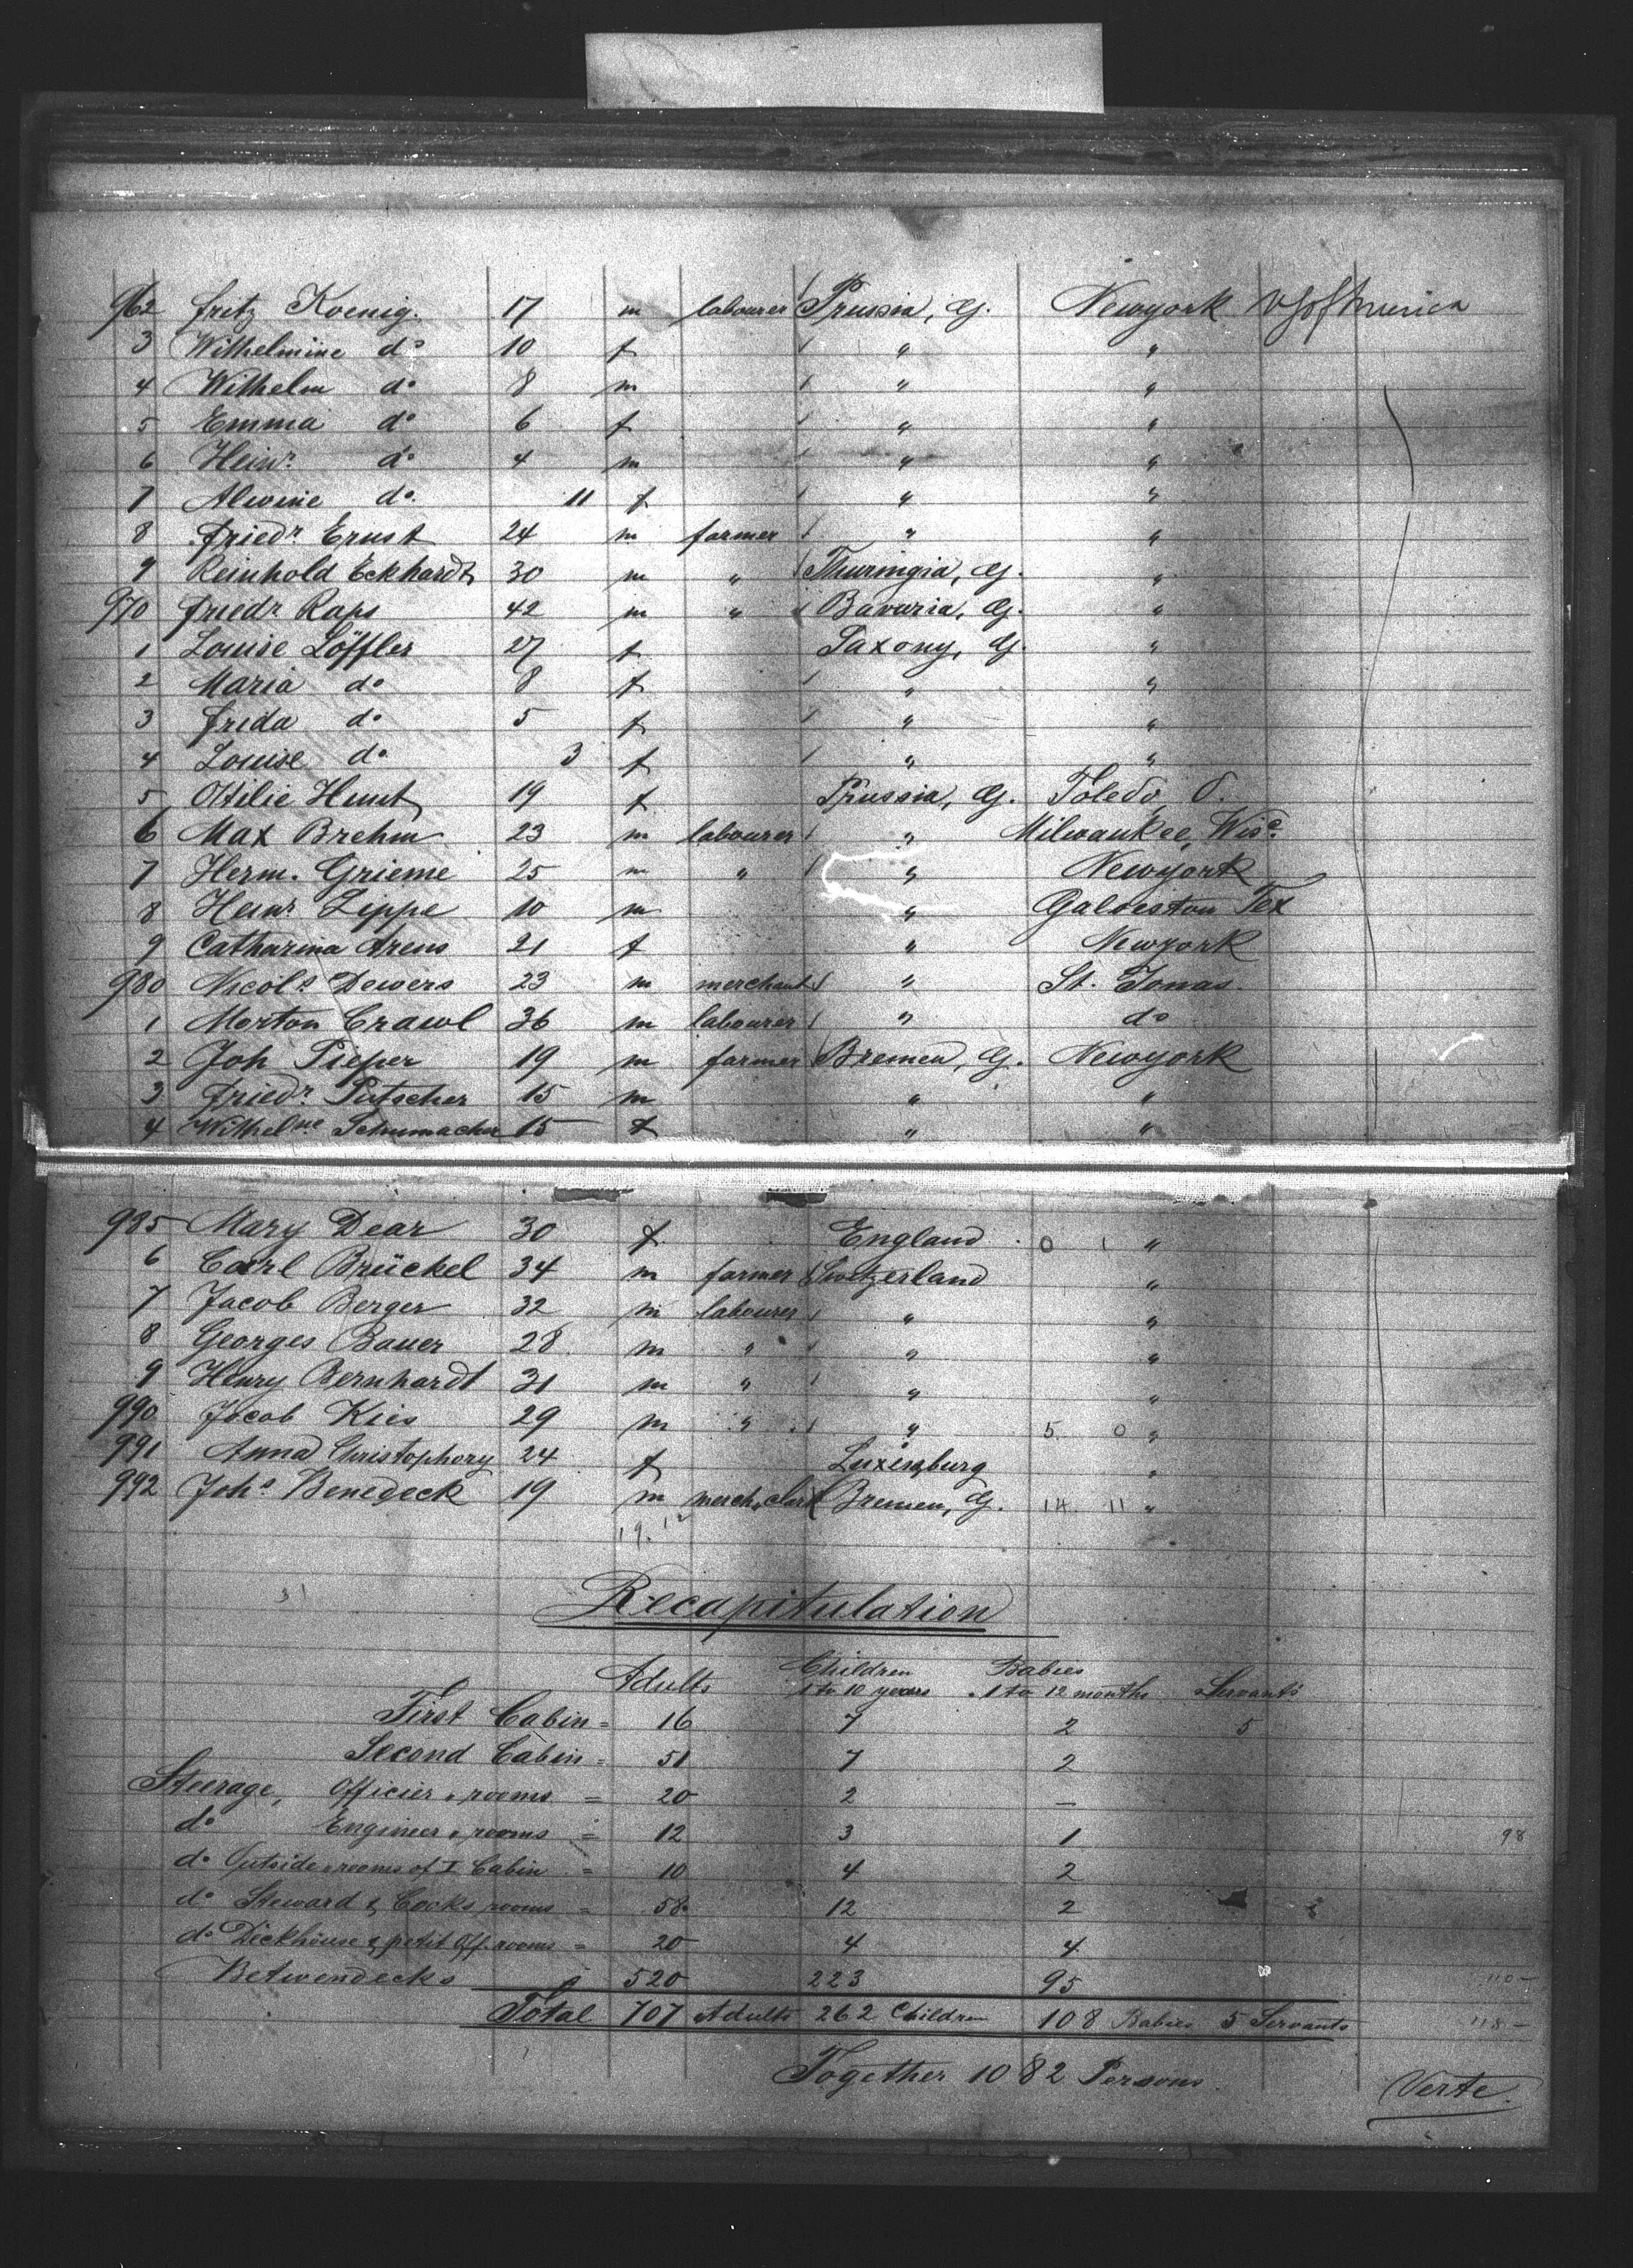 962 Fritz Koenig. 17 m labourer Prussia, G. Newyork U S of America
3 Wilhelmine do 10 f " "
4 Wilhelm do 8 m " "
5 Emma do 6 f " "
6 Heinr. do 4 m " "
7 Alwine do. 11 f " "
8 Friedr. Ernst 24 m farmer " "
9 Reinhold Eckhardt 30 m " Thuringia, G. "
970 Friedr. Raps 42 m " Bavaria, G. "
1 Louise Löffler 27 f Saxony, G. "
2 Maria do 8 f " "
3 Frida do 5 f " "
4 Louise do 3 f " "
5 Ottilie Hunt 19 f Prussia, G. Toledo, O.
6 Max Brehm 23 m labourer " Milwaukee, Wisc.
7 Herm. Grieme 25 m " " Newyork
8 Heinr. Lippe 10 m " Galveston Tex
9 Catharina Arens 21 f " Newyork
980 Nicols Dewers 23 m merchant " St. Tomas.
1 Morton Crawl 36 m labourer " do
2 Joh Pieper 19 m farmer Bremen, G. Newyork
3 Friedr. Pütscher 15 m " "
4 Wilhelne Schumacher 15 f " "
985 Mary Dear 30 f England 0 1 "
6 Carl Brückel 34 m farmer Switzerland "
7 Jacob Berger 32 m labourer " "
8 Georges Bauer 28 m " " "
9 Henry Bernhardt 31 m " " "
990 Jacob Kies 29 m " " 5. 0 "
991 Anna Christophory 24 f Luxemburg "
992 Johs Benedeck 19 m merch. clerk Bremen, G. 14. 11 "
19. 12
31
Recapitulation
Adults Children 1 to 10 years Babies 1 to 12 months Servants
First Cabin = 16 7 2 5
Second Cabin = 51 7 2
Steerage, Officier's rooms = 20 2 —
do Engineer's rooms = 12 3 1
98
do Outside rooms of I Cabin = 10 4 2
do Steward & Cocks rooms = 58 12 2
do Dickhouse & petit Off. rooms = 20 4 4
Betwendecks 520 223 95
110 –
Total 707 Adults 262 Children 108 Babies 5 Servants
118 –
Together 1082 Persons.
Verte.